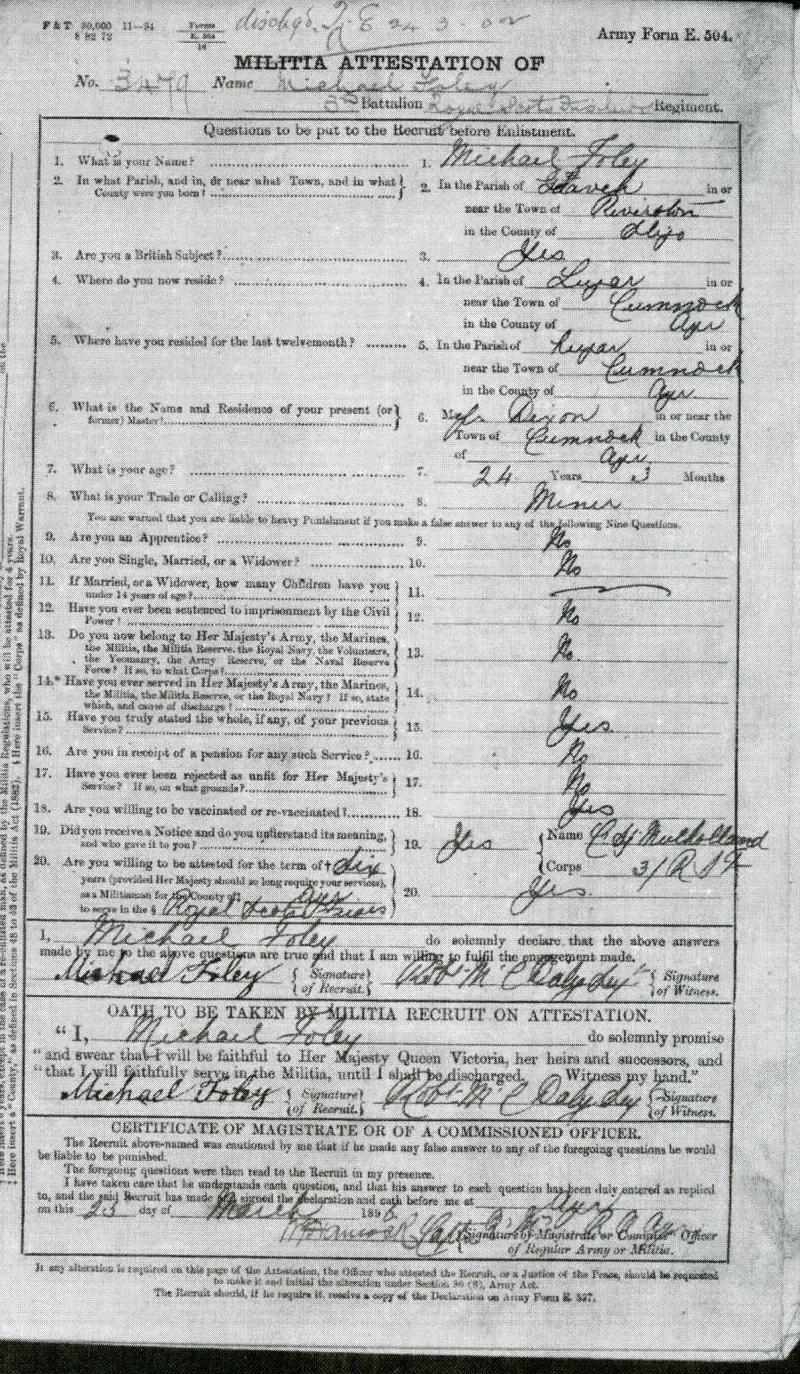 F & T 30,000 11—94 Forms dischgd. T.E 24 3. 02
8 82 72 E. 504 Army Form E. 504.
16
MILITIA ATTESTATION OF
No. 3479 Name Michael Foley
3rd Battalion Royal Scots Fusiliers Regiment.
Questions to be put to the Recruit before Enlistment.
1. What is your Name? 1. Michael Foley
2. In what Parish, and in, or near what Town, and in what 2. In the Parish of in or
County were you born? near the Town of Riverston
in the County of Sligo
3. Are you a British Subject? 3. Yes
4. Where do you now reside? 4. In the Parish of Lugar in or
near the Town of Cumnock
in the County of Ayr
5. Where have you resided for the last twelvemonth? 5. In the Parish of Lugar in or
near the Town of Cumnock
in the County of Ayr
6. What is the Name and Residence of your present (or 6. Mr. Dixon in or near the
former) Master? Town of Cumnock in the County
of Ayr
7. What is your age? 7. 24 Years 3 Months
8. What is your Trade or Calling? 8. Miner
You are warned that you are liable to heavy Punishment if you make a false answer to any of the following Nine Questions.
9. Are you an Apprentice? 9. No
10. Are you Single, Married, or a Widower? 10. No
11. If Married, or a Widower, how many Children have you
under 14 years of age? 11.
12. Have you ever been sentenced to imprisonment by the Civil
Power? 12. No
13. Do you now belong to Her Majesty's Army, the Marines,
the Militia, the Militia Reserve, the Royal Navy, the Volunteers,
the Yeomanry, the Army Reserve, or the Naval Reserve 13. No.
Force? If so, to what Corps?
14.* Have you ever served in Her Majesty's Army, the Marines,
the Militia, the Militia Reserve, or the Royal Navy? If so, state 14. No
which, and cause of discharge?
15. Have you truly stated the whole, if any, of your previous
Service? 15. Yes.
16. Are you in receipt of a pension for any such Service? 16. No
17. Have you ever been rejected as unfit for Her Majesty's
Service? If so, on what grounds? 17. No
18. Are you willing to be vaccinated or re-vaccinated? 18. Yes
19. Did you receive a Notice and do you understand its meaning, 19. Yes Name Mulholland
and who gave it to you? Corps 3/ R S F
20. Are you willing to be attested for the term of † Six
years (provided Her Majesty should so long require your services),
as a Militiaman for the County of ‡ Ayr 20. Yes.
to serve in the § Royal Scots Fusiliers
I, Michael Foley do solemnly declare that the above answers
made by me to the above questions are true and that I am willing to fulfil the engagement made.
Michael Foley Signature of Recruit. Robt. Mc C Daly Signature of Witness.
OATH TO BE TAKEN BY MILITIA RECRUIT ON ATTESTATION.
"I, Michael Foley do solemnly promise
"and swear that I will be faithful to Her Majesty Queen Victoria, her heirs and successors, and
"that I will faithfully serve in the Militia, until I shall be discharged. Witness my hand."
Michael Foley Signature of Recruit. Robt Mc C Daly Signature of Witness.
CERTIFICATE OF MAGISTRATE OR OF A COMMISSIONED OFFICER.
The Recruit above-named was cautioned by me that if he made any false answer to any of the foregoing questions he would
be liable to be punished.
The foregoing questions were then read to the Recruit in my presence.
I have taken care that he understands each question, and that his answer to each question has been duly entered as replied
to, and the said Recruit has made and signed the declaration and oath before me at Ayr
on this 23 day of March 1896.
Capt Signature of Magistrate or Commiss Officer
of Regular Army or Militia.
If any alteration is required on this page of the Attestation, the Officer who attested the Recruit, or a Justice of the Peace, should be requested
to make it and initial the alteration under Section 80 (6), Army Act.
The Recruit should, if he require it, receive a copy of the Declaration on Army Form E. 527.